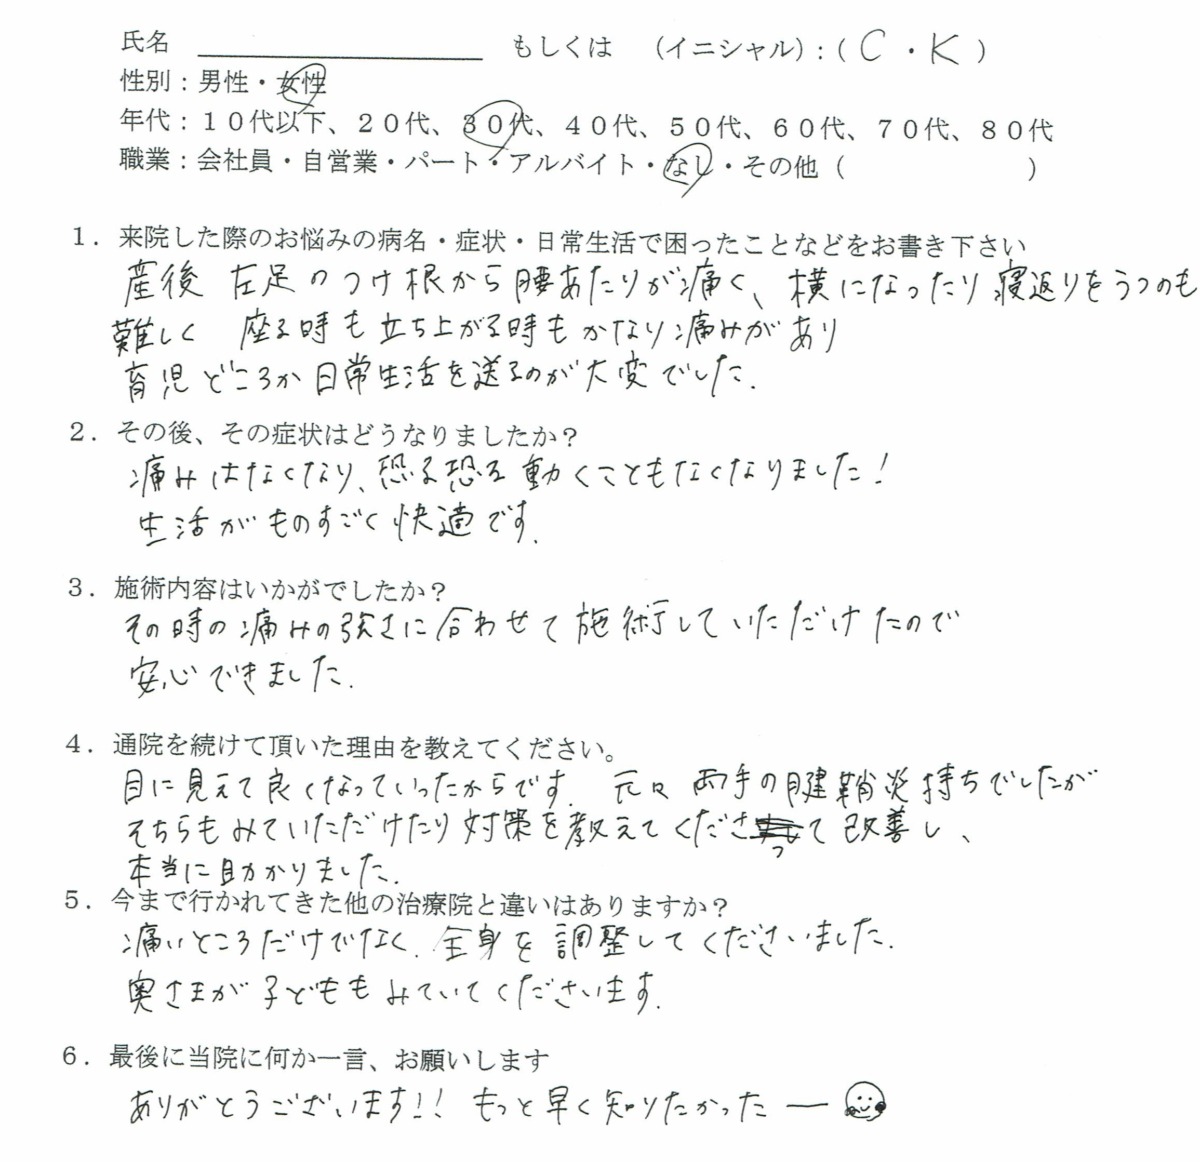 氏名 ＿＿＿＿＿＿＿＿ もしくは （イニシャル）：（ C ・ K ）
性別：男性・女性
年代：１０代以下、２０代、３０代、４０代、５０代、６０代、７０代、８０代
職業：会社員・自営業・パート・アルバイト・なし・その他（　　　　　　　）
１．来院した際のお悩みの病名・症状・日常生活で困ったことなどをお書き下さい
産後 左足のつけ根から腰あたりが痛く、横になったり寝返りをうつのも
難しく 座る時も立ち上がる時もかなり痛みがあり
育児どころか日常生活を送るのが大変でした.
２．その後、その症状はどうなりましたか？
痛みはなくなり、恐る恐る動くこともなくなりました！
生活がものすごく快適です.
３．施術内容はいかがでしたか？
その時の痛みの強さに合わせて施術していただけたので
安心できました.
４．通院を続けて頂いた理由を教えてください。
目に見えて良くなっていったからです. 元々両手の腱鞘炎持ちでしたが
そちらもみていただけたり対策を教えてくださって改善し、
本当に助かりました.
５．今まで行かれてきた他の治療院と違いはありますか？
痛いところだけでなく. 全身を調整してくださいました.
奥さまが子どももみていてくださいます.
６．最後に当院に何か一言、お願いします
ありがとうございます!! もっと早く知りたかったー